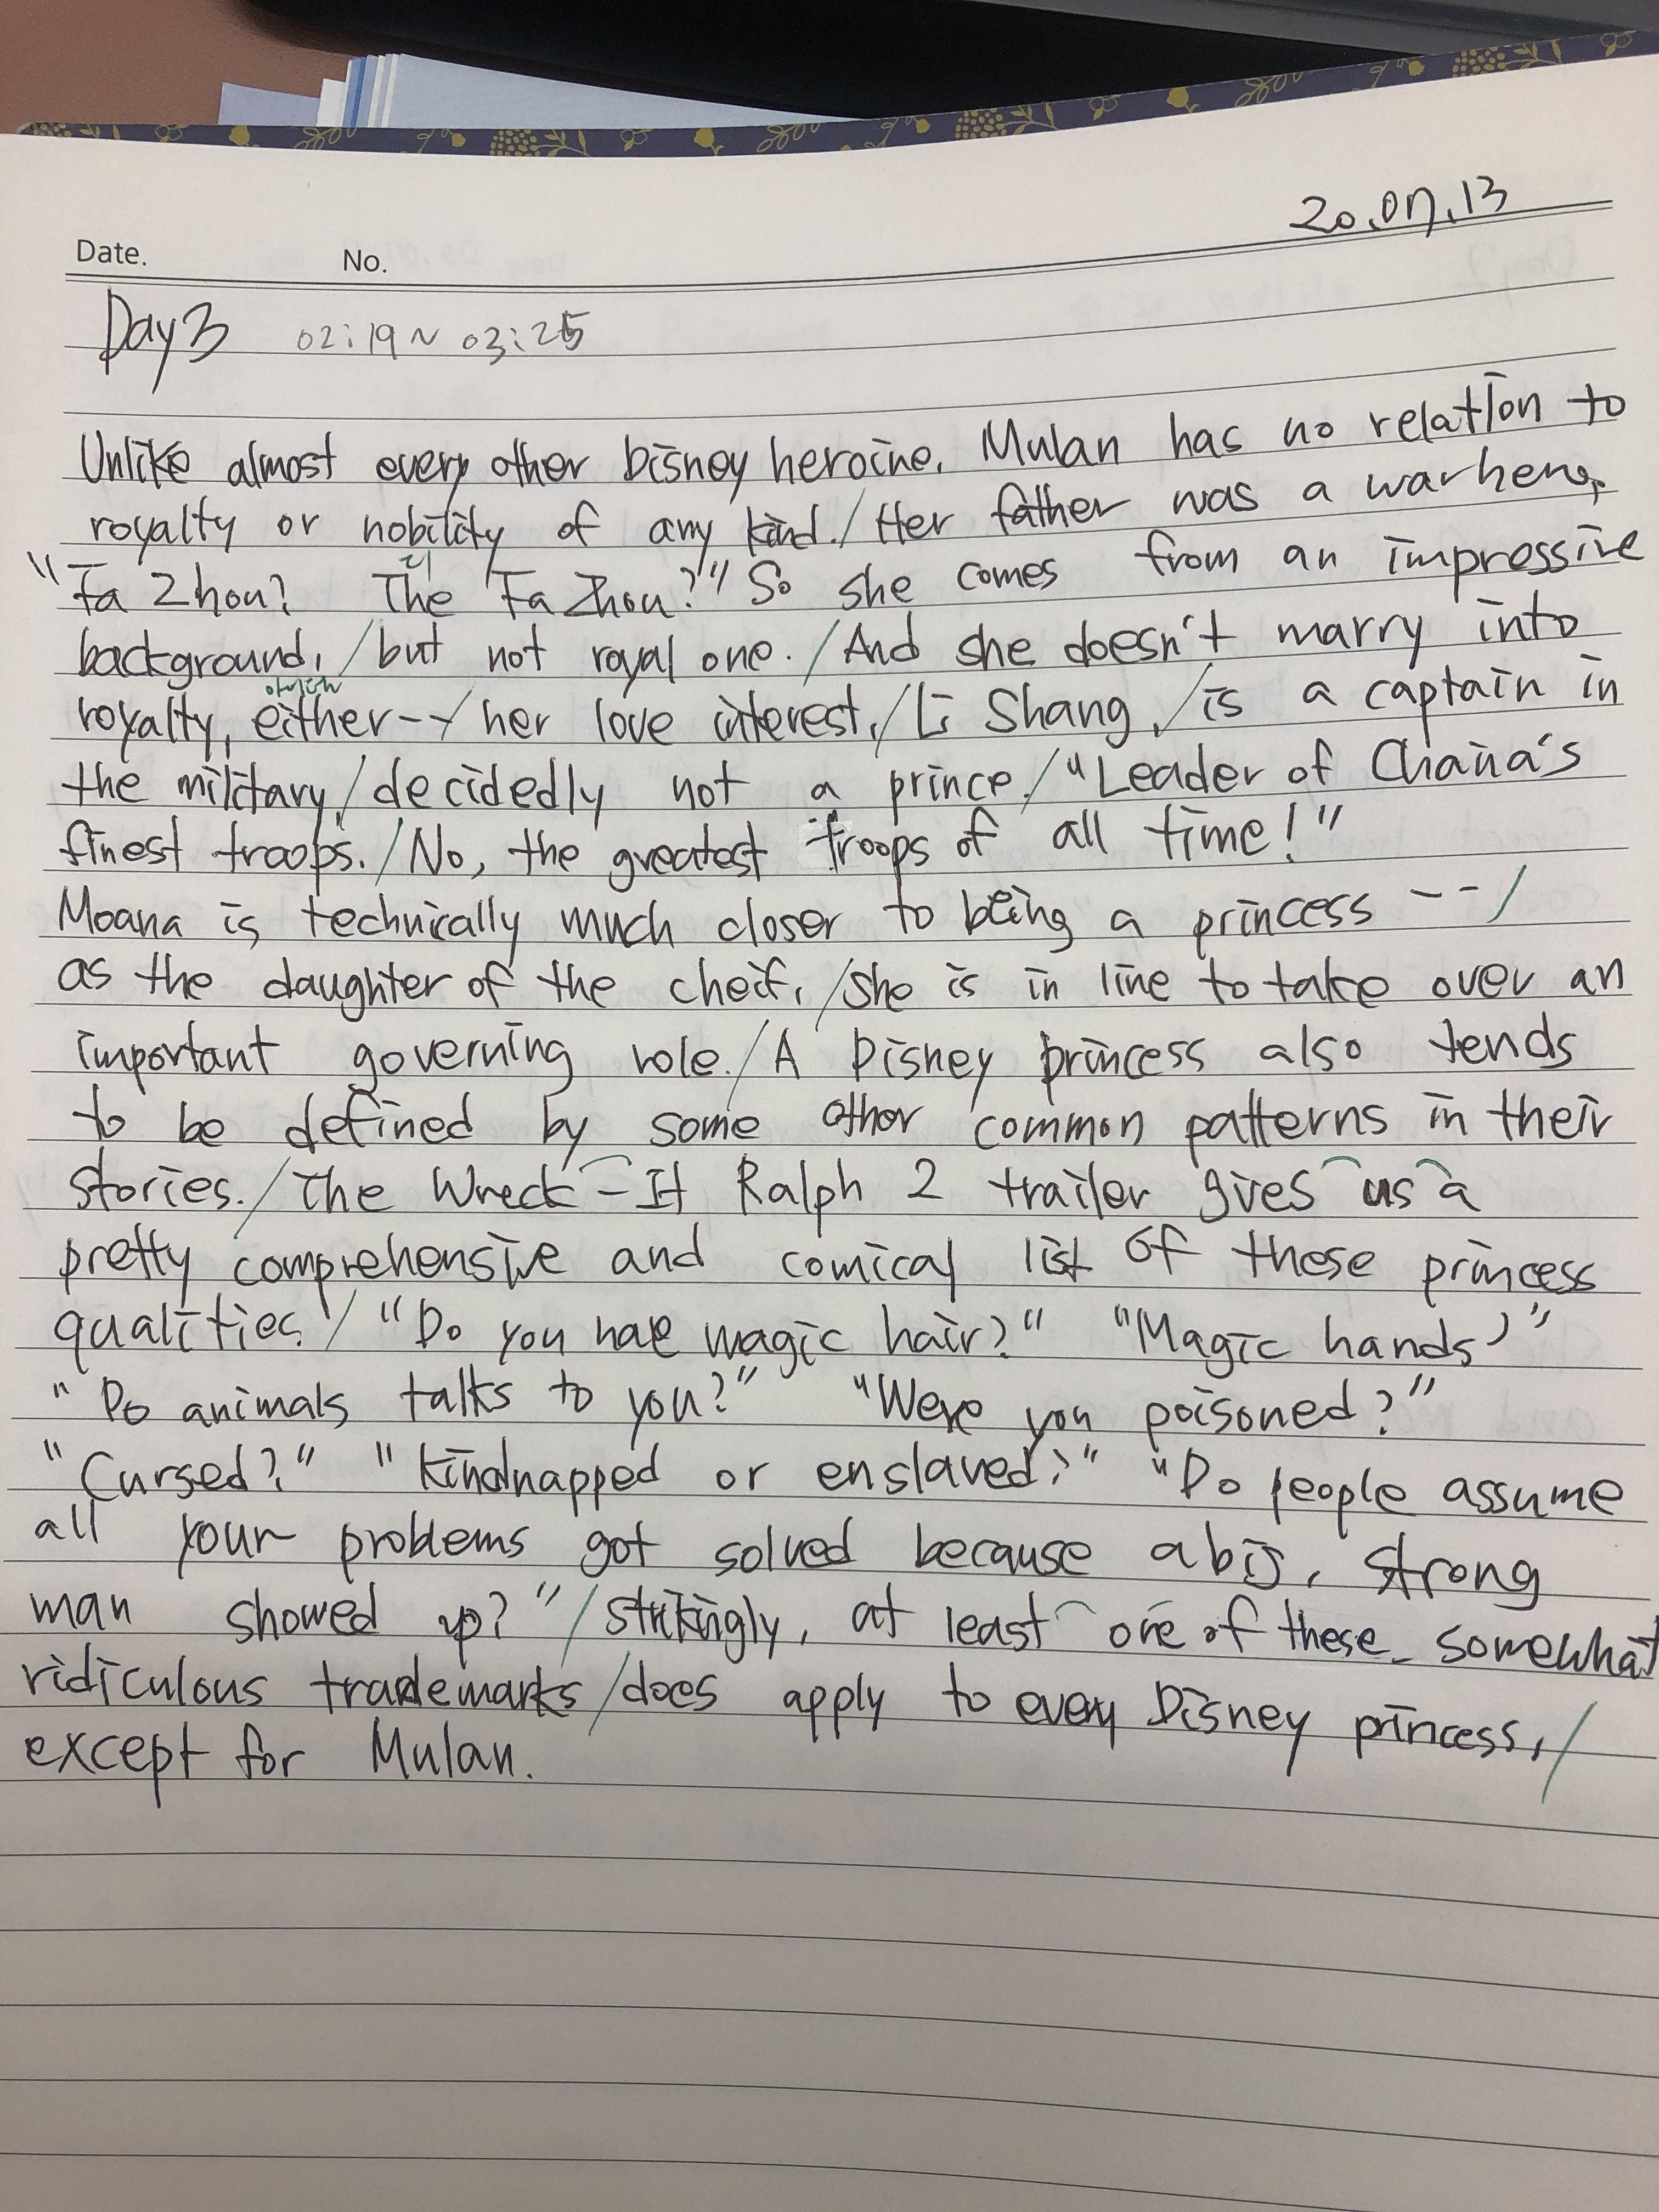 20.07.13
Date. No.
Day 3 02:19~03:25
Unlike almost every other Disney heroine, Mulan has no relation to
royalty or nobility of any kind. / Her father was a war hero,
"Fa Zhou? The 디 Fa Zhou?" So she comes from an impressive
background, / but not royal one. / And she doesn't marry into
royalty, either 아이더 -- / her love interest, / Li Shang, / is a captain in
the military, / decidedly not a prince. / "Leader of Chaina's
finest troops. / No, the greatest troops of all time!"
Moana is technically much closer to being a princess -- /
as the daughter of the cheif, / she is in line to take over an
important governing role. / A Disney princess also tends
to be defined by some other common patterns in their
stories. / The Wreck-It Ralph 2 trailer gives us a
pretty comprehensive and comical list of these princess
qualities. / "Do you have magic hair?" "Magic hands?"
"Do animals talks to you?" "Were you poisoned?"
"Cursed?" "Kindnapped or enslaved?" "Do people assume
all your problems got solved because a big, strong
man showed up?" / Strikingly, at least one of these somewhat
ridiculous trademarks / does apply to every Disney princess, /
except for Mulan.